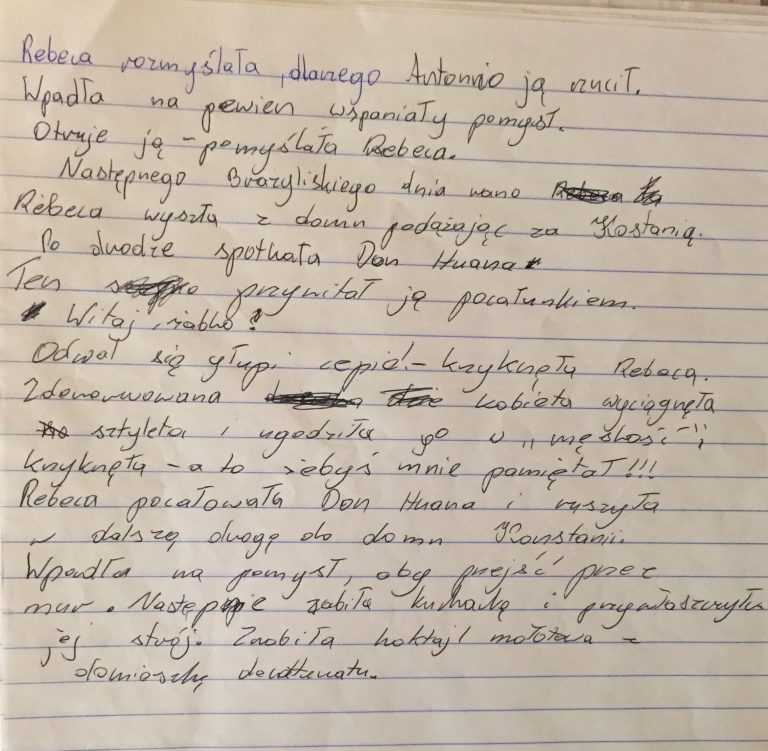 Rebeca rozmyślała, dlaczego Antonnio ją rzucił.
Wpadła na pewien wspaniały pomysł.
Otruje ją - pomyślała Rebeca.
Następnego Brazyliskiego dnia rano
Rebeca wyszła z domu podążając za Kostanią.
Po drodze spotkała Don Huana
Ten przywitał ją pocałunkiem.
Witaj, żabko!
Odwal się głupi cepie! - krzyknęła Rebeca.
Zdenerwowana kobieta wyciągnęła
sztyleta i ugodziła go w "męskość";
krzyknęła - a to żebyś mnie pamiętał!!!
Rebeca pocałowała Don Huana i ruszyła
w dalszą drogę do domu Konstanii.
Wpadła na pomysł, aby przejść przez
mur. Następnie zabiła kucharkę i przywłaszczyła
jej strój. Zrobiła koktajl mołotowa z
domieszką denaturatu.